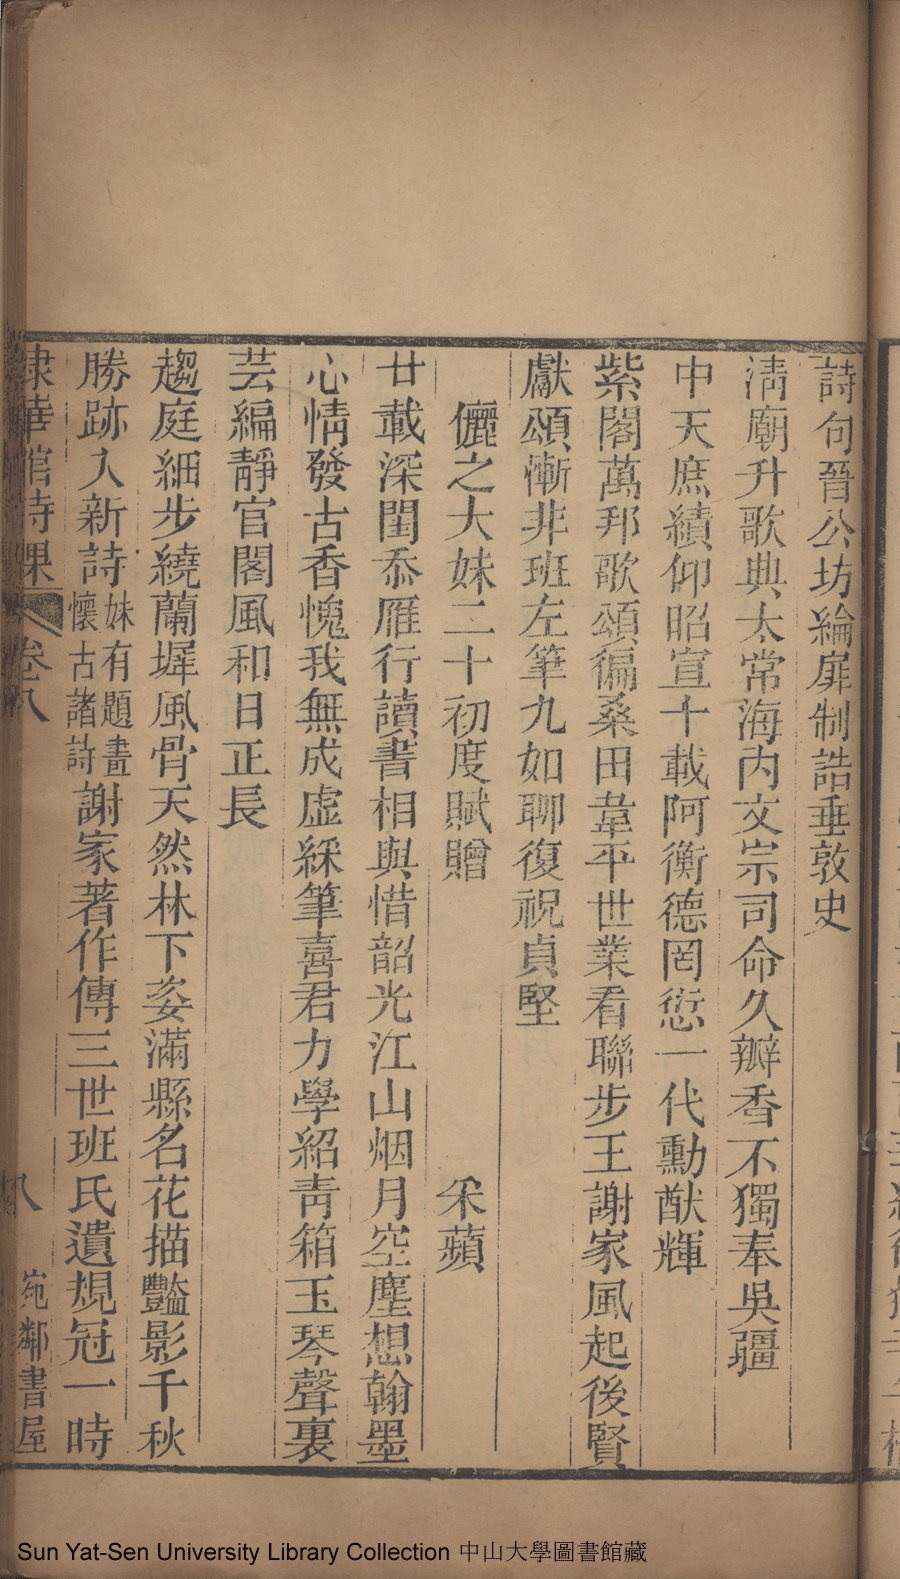 詩句晉公坊綸扉制誥垂敦史
淸廟升歌典太常海內文宗司命久瓣香不獨奉吳疆
中天庶績仰昭宣十載阿衡德罔愆一代勳猷輝
紫閣萬邦歌頌徧桑田韋平世業看聯步王謝家風起後賢
獻頌慚非班左筆九如聊復祝貞堅
儷之大妹二十初度賦贈
采蘋
廿載深閨忝雁行讀書相與惜韶光江山烟月空塵想翰墨
心情發古香愧我無成虛綵筆喜君力學紹靑箱玉琴聲裏
芸編靜官閣風和日正長
趨庭細步繞蘭墀風骨天然林下姿滿縣名花描豔影千秋
勝跡入新詩妹有題畫懷古諸詩謝家著作傳三世班氏遺規冠一時
棣華館詩課
卷八
八
宛鄰書屋
Sun Yat-Sen University Library Collection 中山大學圖書館藏